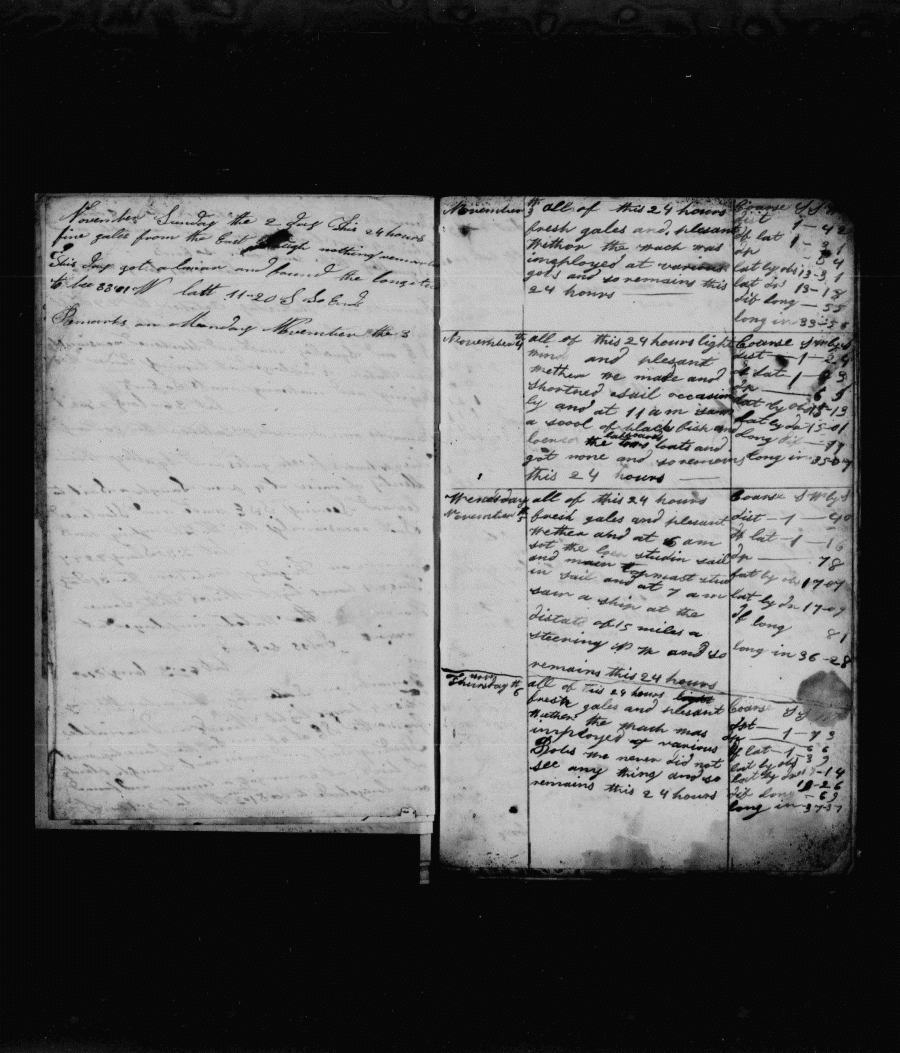 November Sunday the 2 day This 24 hours
fine gales from the East nothing
This day got a lunar and found the longitude
to bee 33-01 W latt 11-20 S So End
Remarks on Monday November the 3
November th 3
all of this 24 hours
fresh gales and plesant
wether the wach was
imployed at various
gobs and so remains this
24 hours
Coarse S S W
dist 1 - 42
df lat 1 - 31
dp - 54
lat by obs 13-31
lat dr 13-18
dif long - 55
long in 33-56
November th 4
all of this 24 hours light
wind and plesant
wether we made and
shortned sail occasion
ly and at 11 am saw
a scool of black fish and
loered the boats and
got none and so remains
this 24 hours
Coarse S W by S
dist - 1 - 24
df lat - 1
dp - 69
lat by obs 15-13
lat by dr 15-01
long dif
long in 35-07
Wensday
November th 5
all of this 24 hours
fresh gales and plesant
wether and at 6 am
sot the loer studin sail
and main topmast stud
in sail and at 7 am
saw a ship at the
distate of 15 miles a
steering N W and so
remains this 24 hours
Coarse S W by S
dist - 1 - 40
df lat - 1 - 16
dp - 78
lat by obs 17-07
lat by dr 17-09
df long
81
long in 36-28
Thursday th 6
all of this 24 hours
fresh gales and plesant
wether the wach was
imployed at various
Jobs we never did not
see any thing and so
remains this 24 hours
Coars S
dst - 1 - 73
df lat - 1 - 66
lat by obs
lat by dr
dif long - 69
long in - 37-37